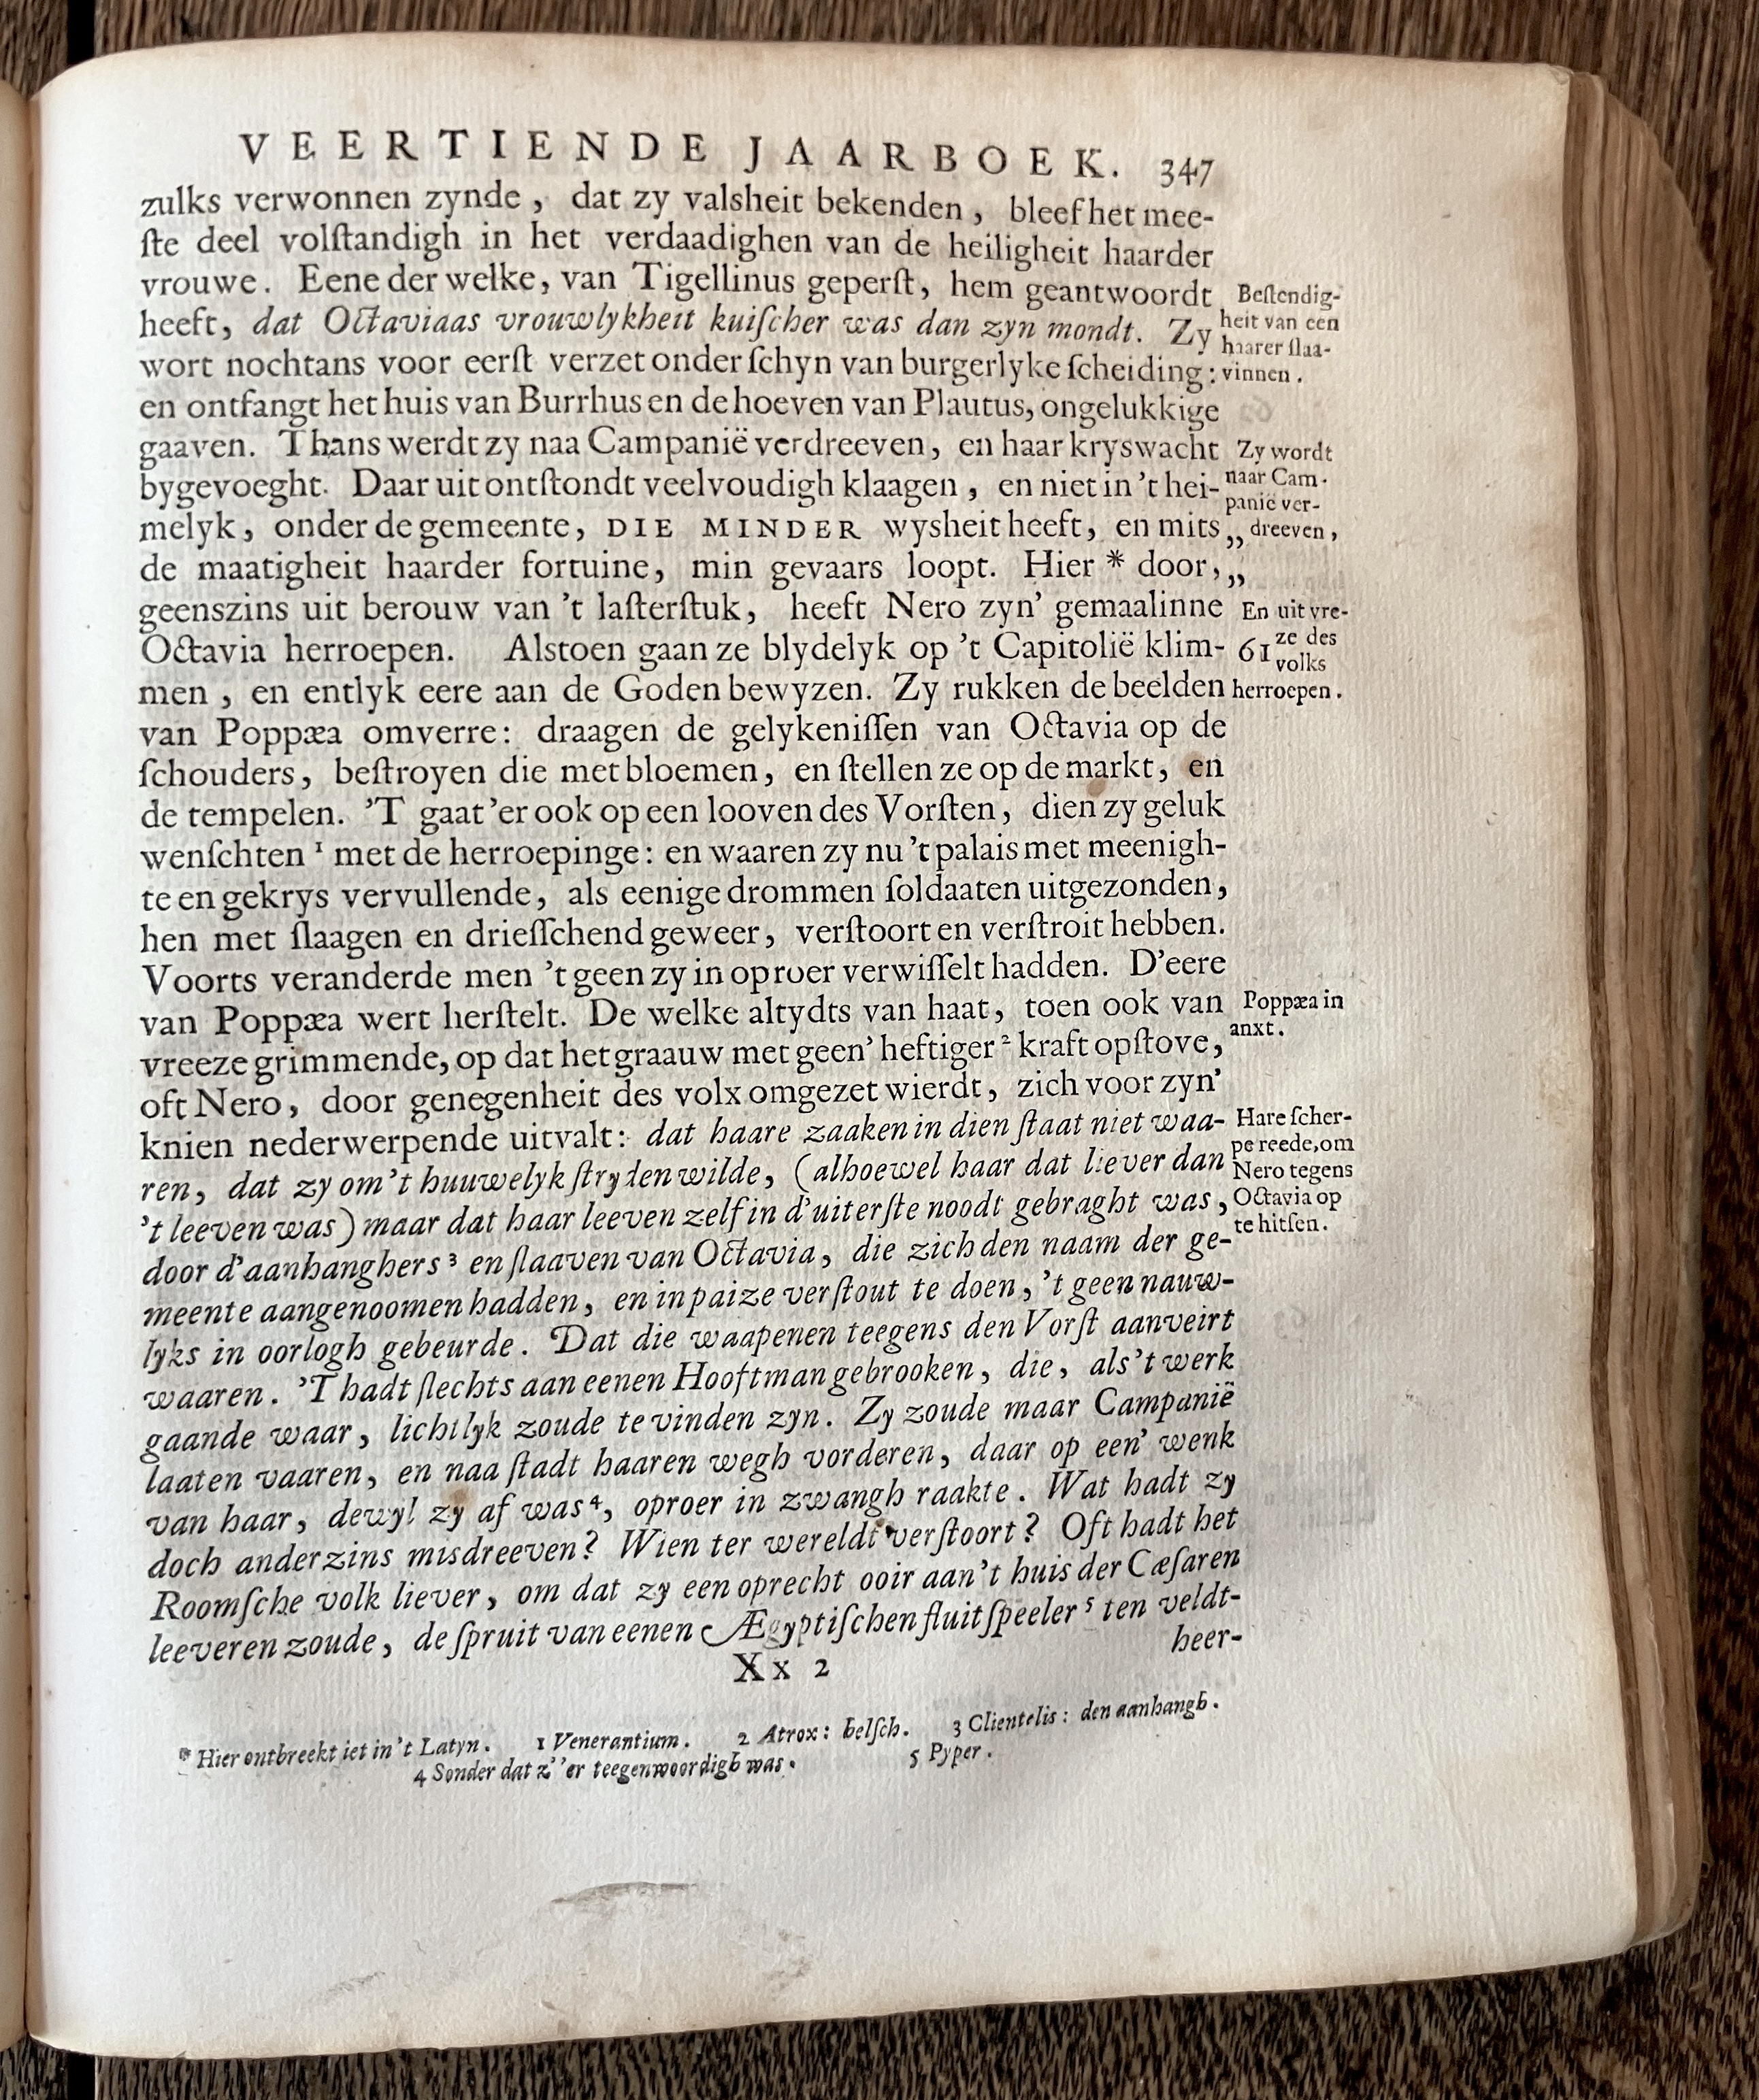 VEERTIENDE JAARBOEK. 347
zulks verwonnen zynde, dat zy valsheit bekenden, bleef het mee-
ſte deel volſtandigh in het verdaadighen van de heiligheit haarder
vrouwe. Eene der welke, van Tigellinus geperſt, hem geantwoordt
heeft, dat Octaviaas vrouwlykheit kuiſcher was dan zyn mondt. Zy
wort nochtans voor eerſt verzet onder ſchyn van burgerlyke ſcheiding:
en ontfangt het huis van Burrhus en de hoeven van Plautus, ongelukkige
gaaven. Thans werdt zy naa Campanië verdreeven, en haar kryswacht
bygevoeght. Daar uit ontſtondt veelvoudigh klaagen, en niet in 't hei-
melyk, onder de gemeente, DIE MINDER wysheit heeft, en mits „
de maatigheit haarder fortuine, min gevaars loopt. Hier * door, „
geenszins uit berouw van 't laſterſtuk, heeft Nero zyn' gemaalinne
Octavia herroepen. Alstoen gaan ze blydelyk op 't Capitolië klim-
men, en entlyk eere aan de Goden bewyzen. Zy rukken de beelden
van Poppæa omverre: draagen de gelykeniſſen van Octavia op de
ſchouders, beſtroyen die met bloemen, en ſtellen ze op de markt, en
de tempelen. 'T gaat 'er ook op een looven des Vorſten, dien zy geluk
wenſchten ¹ met de herroepinge: en waaren zy nu 't palais met meenigh-
te en gekrys vervullende, als eenige drommen ſoldaaten uitgezonden,
hen met ſlaagen en drieſſchend geweer, verſtoort en verſtroit hebben.
Voorts veranderde men 't geen zy in oproer verwiſſelt hadden. D'eere
van Poppæa wert herſtelt. De welke altydts van haat, toen ook van
vreeze grimmende, op dat het graauw met geen' heftiger ² kraft opſtove,
oft Nero, door genegenheit des volx omgezet wierdt, zich voor zyn'
knien nederwerpende uitvalt: dat haare zaaken in dien ſtaat niet waa-
ren, dat zy om't huuwelyk ſtryden wilde, (alhoewel haar dat liever dan
't leeven was) maar dat haar leeven zelf in d'uiterſte noodt gebraght was,
door d'aanhanghers ³ en ſlaaven van Octavia, die zich den naam der ge-
meente aangenoomen hadden, en in paize verſtout te doen, 't geen nauw-
lyks in oorlogh gebeurde. Dat die waapenen teegens den Vorſt aanveirt
waaren. 'T hadt ſlechts aan eenen Hooftman gebrooken, die, als 't werk
gaande waar, lichtlyk zoude te vinden zyn. Zy zoude maar Campanië
laaten vaaren, en naa ſtadt haaren wegh vorderen, daar op een' wenk
van haar, dewyl zy af was ⁴, oproer in zwangh raakte. Wat hadt zy
doch anderzins misdreeven? Wien ter wereldt verſtoort? Oft hadt het
Roomſche volk liever, om dat zy een oprecht ooir aan't huis der Cæſaren
leeveren zoude, de ſpruit van eenen Ægyptiſchen fluitſpeeler ⁵ ten veldt-
heer-
Xx 2
* Hier ontbreekt iet in't Latyn. 1 Venerantium. 2 Atrox: helſch. 3 Clientelis: den aanhangh.
4 Sonder dat z''er teegenwoordigh was. 5 Pyper.
Beſtendig-
heit van een
haarer ſlaa-
vinnen.
Zy wordt
naar Cam-
panië ver-
dreeven,
En uit vre-
61 ze des
volks
herroepen.
Poppæa in
anxt.
Hare ſcher-
pe reede, om
Nero tegens
Octavia op
te hitſen.